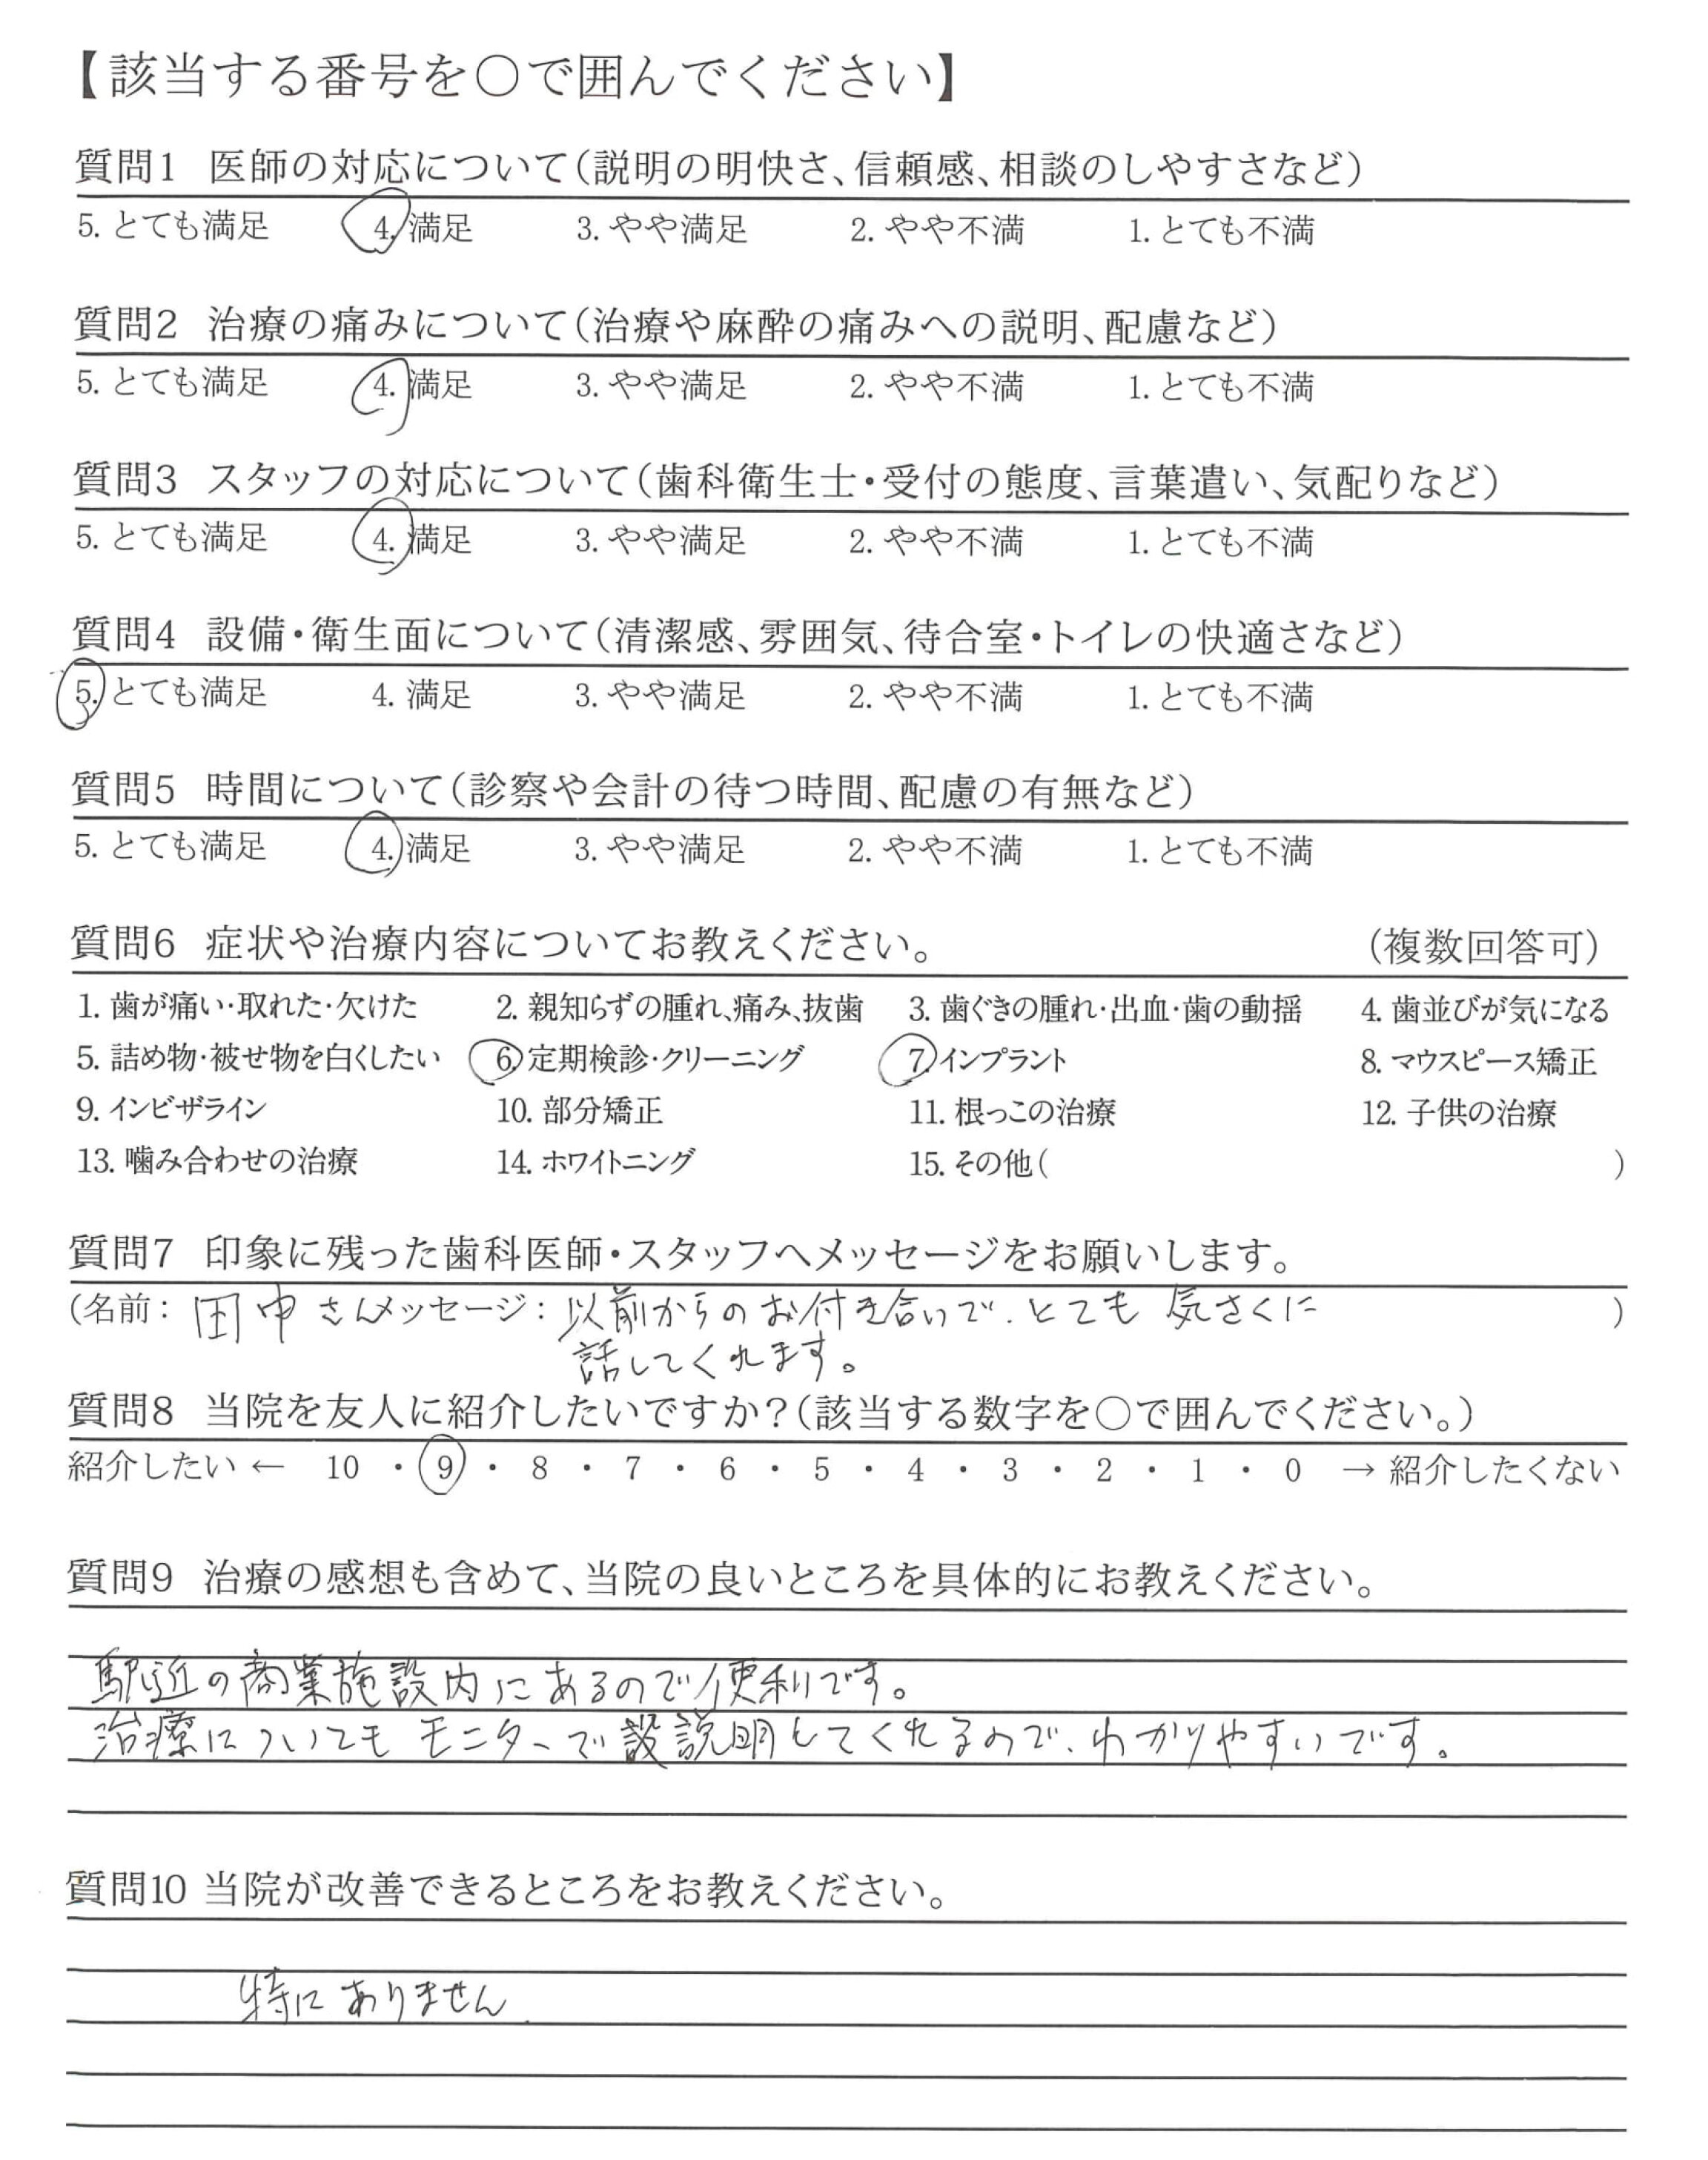 【該当する番号を○で囲んでください】
質問1 医師の対応について(説明の明快さ、信頼感、相談のしやすさなど)
5. とても満足 4. 満足 3. やや満足 2. やや不満 1. とても不満
質問2 治療の痛みについて(治療や麻酔の痛みへの説明、配慮など)
5. とても満足 4. 満足 3. やや満足 2. やや不満 1. とても不満
質問3 スタッフの対応について(歯科衛生士・受付の態度、言葉遣い、気配りなど)
5. とても満足 4. 満足 3. やや満足 2. やや不満 1. とても不満
質問4 設備・衛生面について(清潔感、雰囲気、待合室・トイレの快適さなど)
5. とても満足 4. 満足 3. やや満足 2. やや不満 1. とても不満
質問5 時間について(診察や会計の待つ時間、配慮の有無など)
5. とても満足 4. 満足 3. やや満足 2. やや不満 1. とても不満
質問6 症状や治療内容についてお教えください。 (複数回答可)
1. 歯が痛い・取れた・欠けた 2. 親知らずの腫れ、痛み、抜歯 3. 歯ぐきの腫れ・出血・歯の動揺 4. 歯並びが気になる
5. 詰め物・被せ物を白くしたい 6. 定期検診・クリーニング 7. インプラント 8. マウスピース矯正
9. インビザライン 10. 部分矯正 11. 根っこの治療 12. 子供の治療
13. 噛み合わせの治療 14. ホワイトニング 15. その他( )
質問7 印象に残った歯科医師・スタッフへメッセージをお願いします。
(名前: 田中さん メッセージ: 以前からのお付き合いで、とても気さくに )
話してくれます。
質問8 当院を友人に紹介したいですか?(該当する数字を○で囲んでください。)
紹介したい ← 10 ・ 9 ・ 8 ・ 7 ・ 6 ・ 5 ・ 4 ・ 3 ・ 2 ・ 1 ・ 0 → 紹介したくない
質問9 治療の感想も含めて、当院の良いところを具体的にお教えください。
駅近の商業施設内にあるので便利です。
治療についてもモニターで設説明してくれるので、わかりやすいです。
質問10 当院が改善できるところをお教えください。
特にありません.